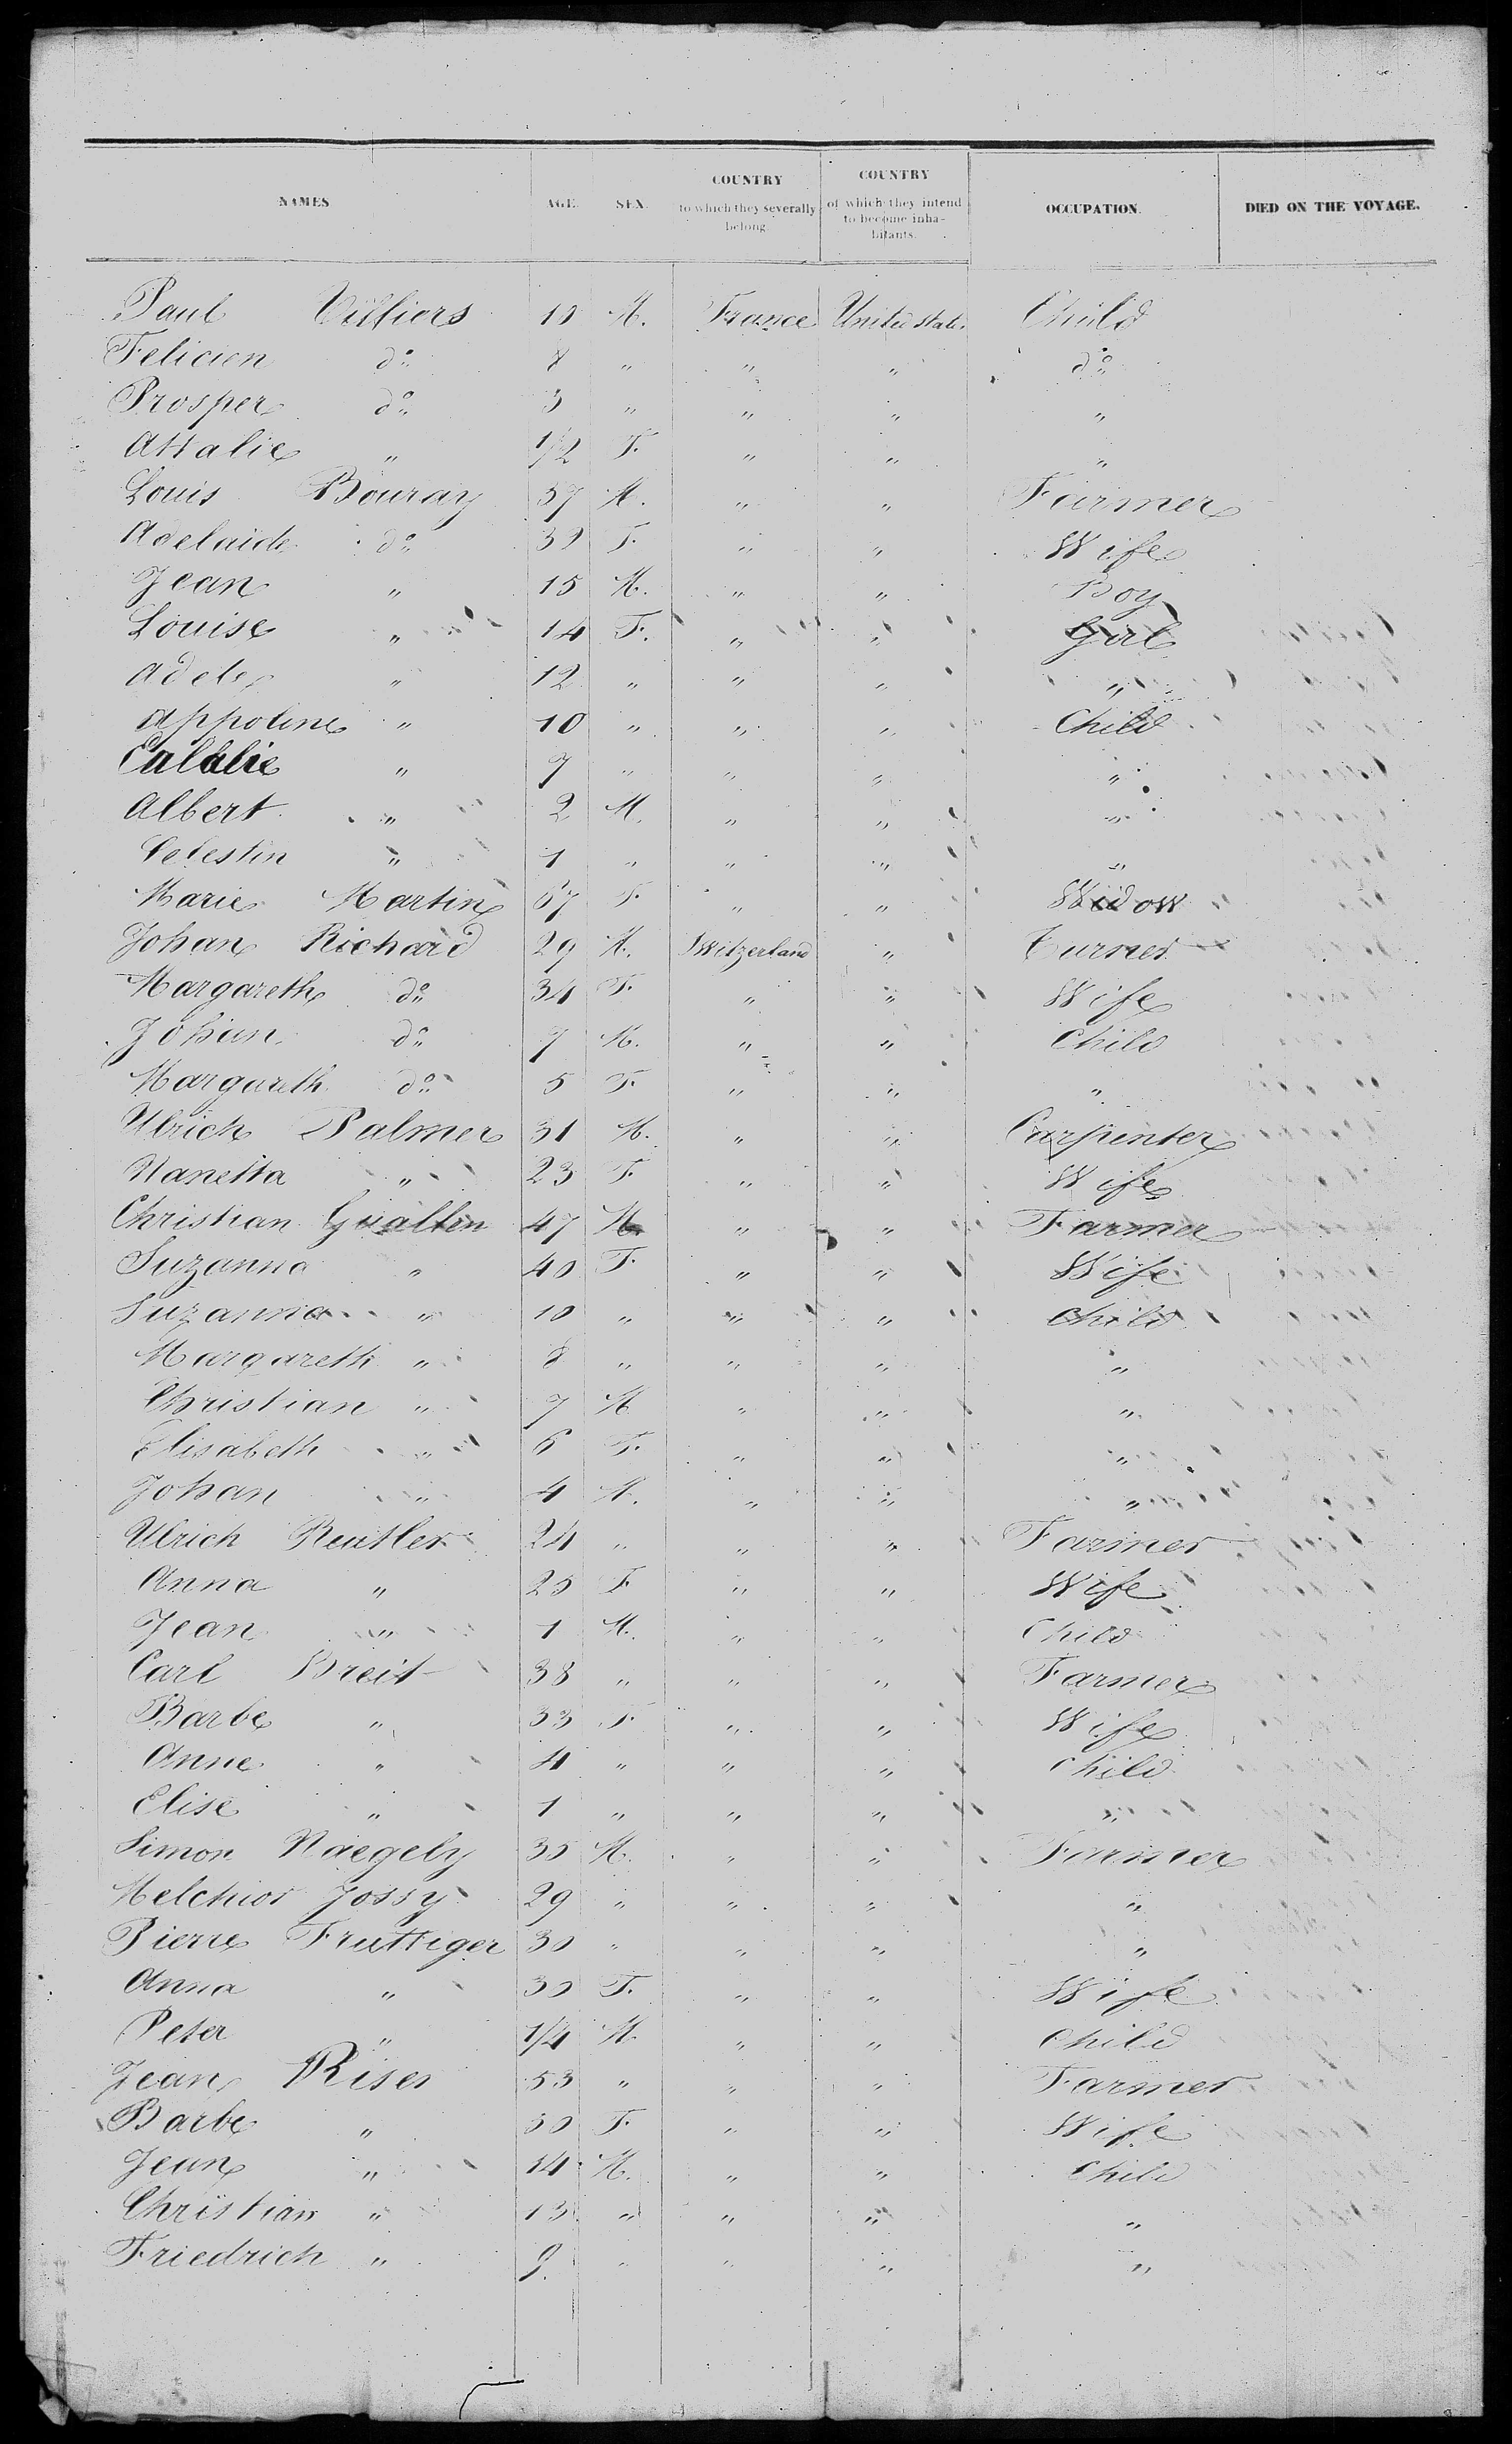 NAMES AGE. SEX. COUNTRY to which they severally belong. COUNTRY of which they intend to become inhabitants. OCCUPATION. DIED ON THE VOYAGE.
Paul Villiers 10 M. France United States. Child
Felicien do 8 " " " do
Prosper do 3 " " " "
Attalie " 1/2 F. " " "
Louis Bouray 37 M. " " Farmer
Adelaide do 39 F. " " Wife
Jean " 15 M. " " Boy
Louise " 14 F. " " Girl
Adele " 12 " " " "
Appoline " 10 " " " Child
" 7 " " " "
Albert " 2 M. " " "
Celestin " 1 " " " "
Marie Martin 67 F. " " Widow
Johan Richard 29 M. Switzerland " Turner
Margareth do 34 F. " " Wife
Johan do 7 M. " " Child
Margareth do 5 F. " " "
Ulrich Palmer 31 M. " " Carpenter
Nanetta " 23 F. " " Wife
Christian Guallen 47 M. " " Farmer
Suzanna " 40 F. " " Wife
Suzanna " 10 " " " Child
Margareth " 8 " " " "
Christian " 7 M " " "
Elisabeth " 6 F. " " "
Johan " 4 M. " " "
Ulrich Reutler 24 " " " Farmer
Anna " 25 F. " " Wife
Jean " 1 M. " " Child
Carl Breit 38 " " " Farmer
Barbe " 33 F. " " Wife
Anne " 4 " " " Child
Elise " 1 " " " "
Simon Naegely 35 M. " " Farmer
Melchior Jossy 29 " " " "
Pierre Fruttiger 30 " " " "
Anna " 30 F. " " Wife
Peter " 1/4 M. " " Child
Jean Riser 53 " " " Farmer
Barbe " 50 F. " " Wife
Jean " 14 M. " " Child
Christian " 13 " " " "
Friedrich " 9. " " " "